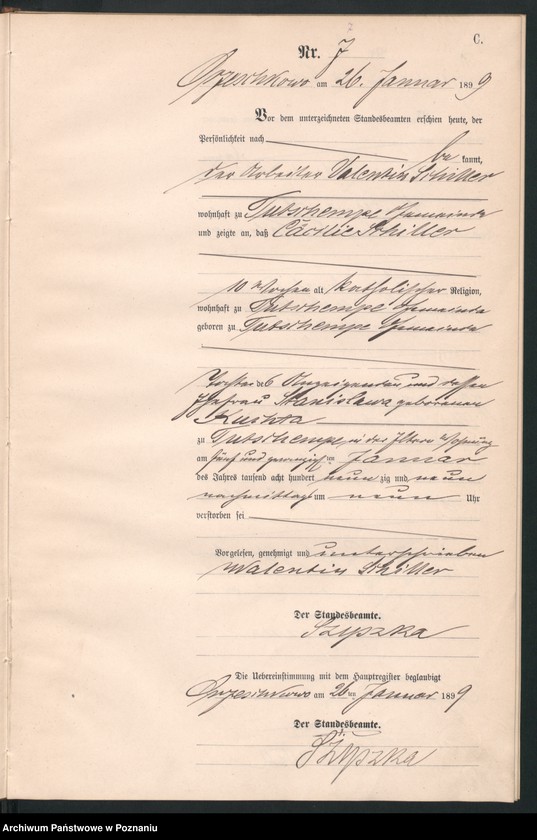 C.
Nr. 7
am 26. Januar 1899
Vor dem unterzeichneten Standesbeamten erschien heute, der
Persönlichkeit nach
be kannt,
der Arbeiter Valentin Schiller
wohnhaft zu Tutschempe Gemeinde
und zeigte an, daß Cäcilie Schiller
10 Wochen alt katholischer Religion,
wohnhaft zu Tutschempe Gemeinde
geboren zu Tutschempe Gemeinde
Tochter des Anzeigenden und dessen
Ehefrau Stanislawa geborenen
zu Tutschempe in der Wohnung
am fünf und zwanzig ten Januar
des Jahres tausend acht hundert neun zig und neun
nachmittags um neun Uhr
verstorben sei
Vorgelesen, genehmigt und unterschrieben
Walentin Schiller
Der Standesbeamte.
Szyszka
Die Uebereinstimmung mit dem Hauptregister beglaubigt
am 26 ten Januar 1899
Der Standesbeamte.
Szyszka
Archiwum Państwowe w Poznaniu